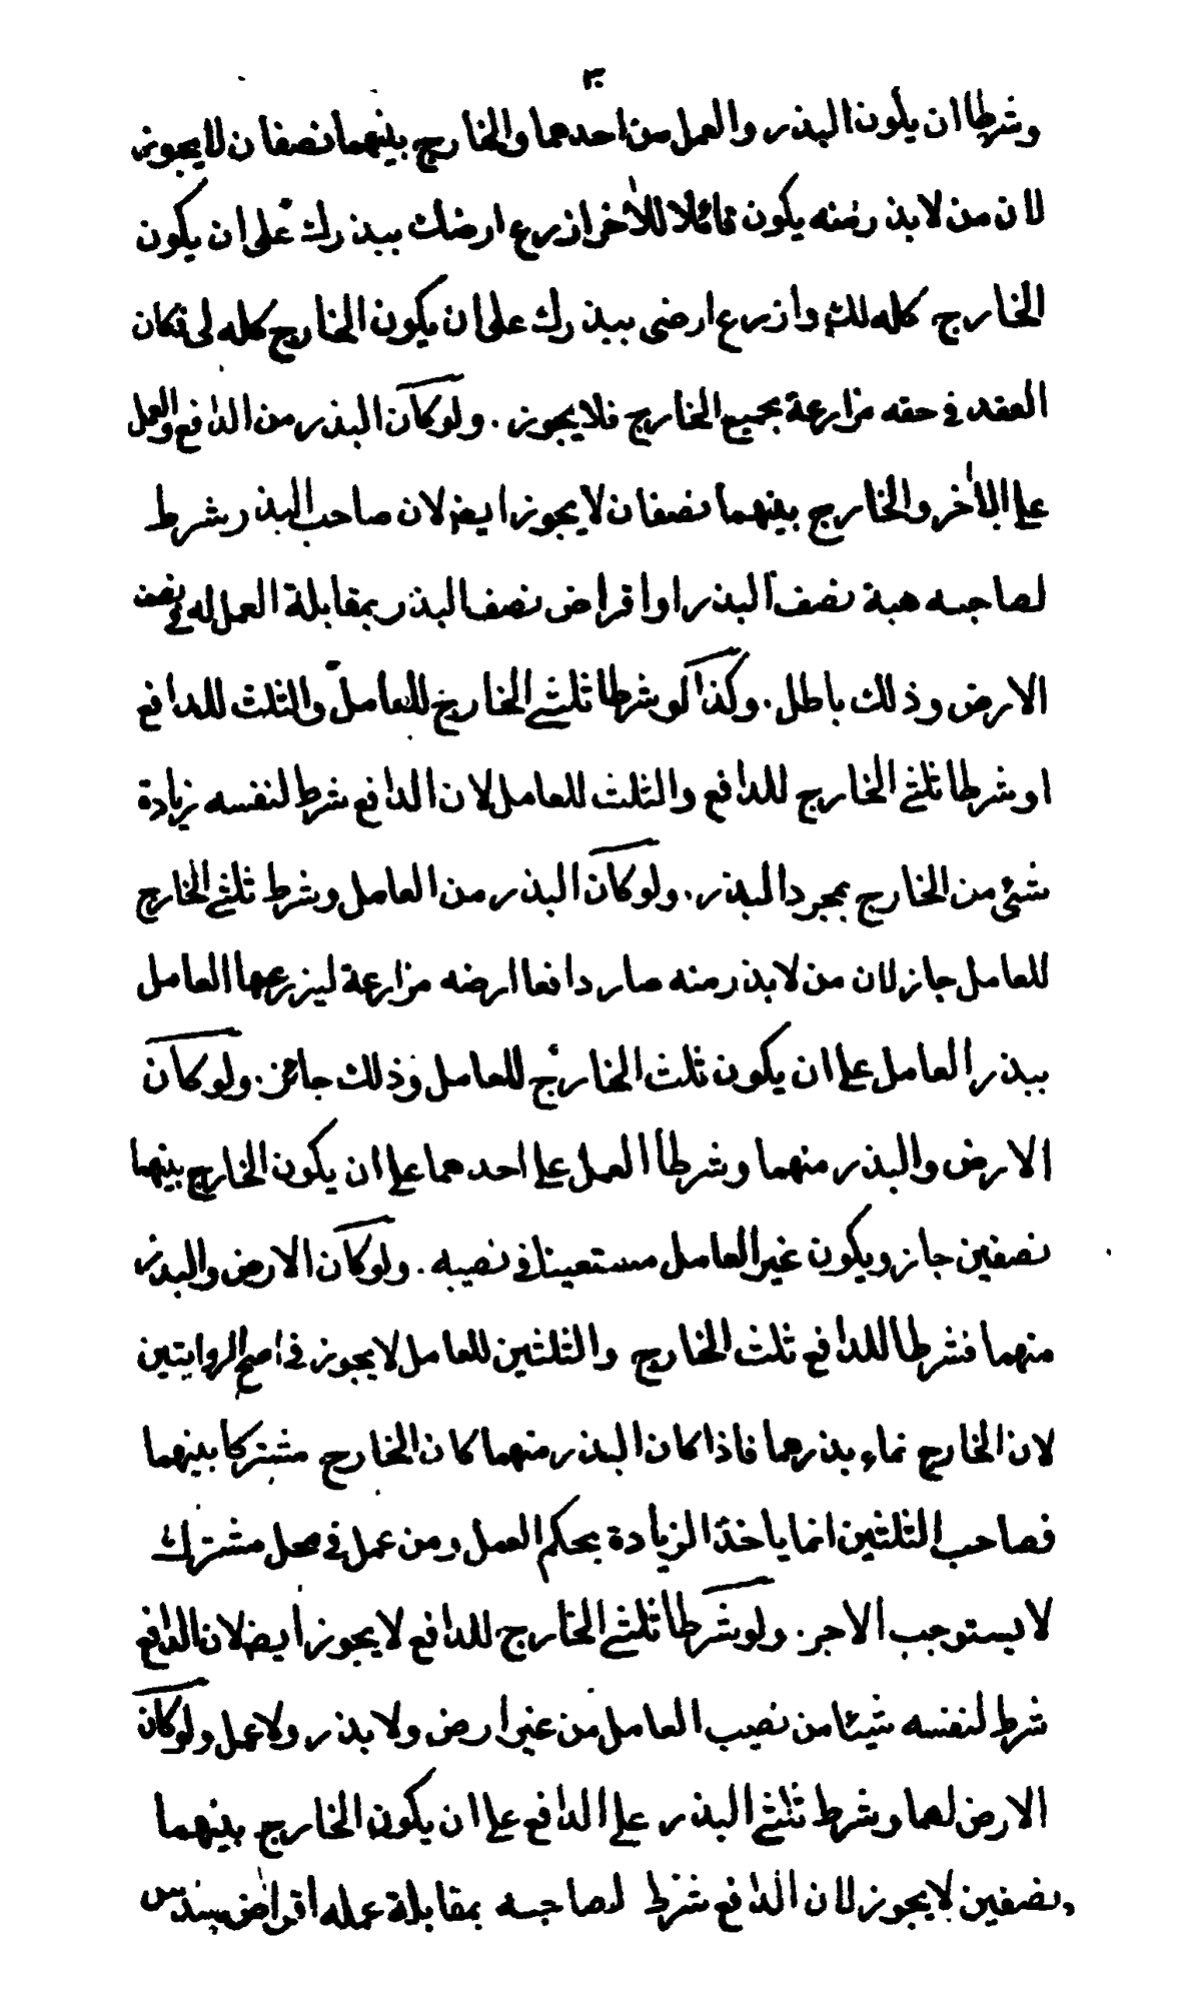 ٣٠
وشرطا ان يكون البذر والعمل من احدهما والخارج بينهما نصفان لا يجوز
لان من لا بذر منه يكون قائلا للآخر ازرع ارضك ببذرك على ان يكون
الخارج كله لك وازرع ارضى ببذرك على ان يكون الخارج كله لى فكان
العقد فى حقه مزارعة بجميع الخارج فلا يجوز . ولو كان البذر من الدافع والعمل
على الآخر والخارج بينهما نصفان لا يجوز ايض لان صاحب البذر شرط
لصاحبه هبة نصف البذر او اقراض نصف البذر بمقابلة العمل له فى نصف
الارض وذلك باطل . وكذا لو شرطا ثلثى الخارج للعامل والثلث للدافع
او شرطا ثلثى الخارج للدافع والثلث للعامل لان الدافع شرط لنفسه زيادة
شئ من الخارج بمجرد البذر . ولو كان البذر من العامل وشرط ثلثى الخارج
للعامل جاز لان من لا بذر منه صار دافعا ارضه مزارعة ليزرعها العامل
ببذر العامل على ان يكون ثلث الخارج للعامل وذلك جائز . ولو كان
الارض والبذر منهما وشرطا العمل على احدهما على ان يكون الخارج بينهما
نصفين جاز ويكون غير العامل مستعينا فى نصيبه . ولو كان الارض والبذر
منهما فشرطا للدافع ثلث الخارج والثلثين للعامل لا يجوز فى اصح الروايتين
لان الخارج نماء بذرهما فاذا كان البذر منهما كان الخارج مشتركا بينهما
فصاحب الثلثين انما ياخذ الزيادة بحكم العمل ومن عمل فى محل مشترك
لا يستوجب الاجر . ولو شرطا ثلثى الخارج للدافع لا يجوز ايض لان الدافع
شرط لنفسه شيئا من نصيب العامل من غير ارض ولا بذر ولا عمل ولو كان
الارض لهما وشرط ثلثى البذر على الدافع على ان يكون الخارج بينهما
نصفين لا يجوز لان الدافع شرط لصاحبه بمقابلة عمله اقراض سدس